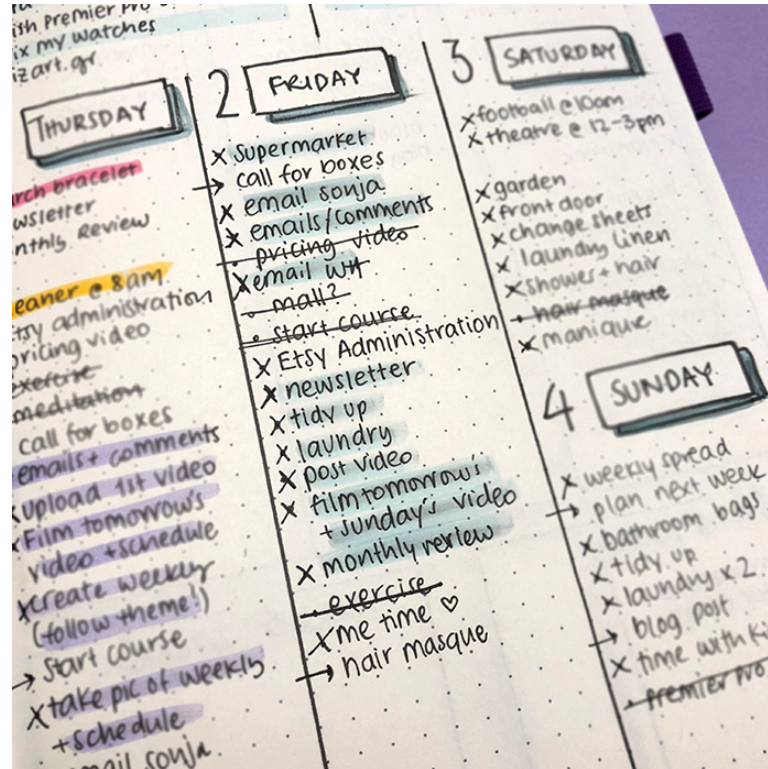 ish Premier Pro
ix my watches
izart.gr
THURSDAY
rch bracelet
wsletter
nthly Review
eaner @ 8am
tsy administration
pricing video
exercise
meditation
call for boxes
emails + comments
x upload 1st video
x Film tomorrow's
video + schedule
x create weekly
(follow theme!)
→ start course
x take pic of weekly
+ schedule
email sonja
2 FRIDAY
x Supermarket
→ call for boxes
x email sonja
x emails/comments
• pricing video
x email WH
• mall?
• start course
x Etsy Administration
x newsletter
x tidy up
x laundry
x post video
x film tomorrow's
+ sunday's video
x monthly review
• exercise
x me time ♡
→ hair masque
3 SATURDAY
x football @ 10am
x theatre @ 12-3pm
x garden
x front door
x change sheets
x laundry linen
x shower + hair
• hair masque
x manique
4 SUNDAY
x weekly spread
→ plan next week
x bathroom bags
x tidy up
x laundry x 2
→ blog post
x time with Ki
• Premier Pro